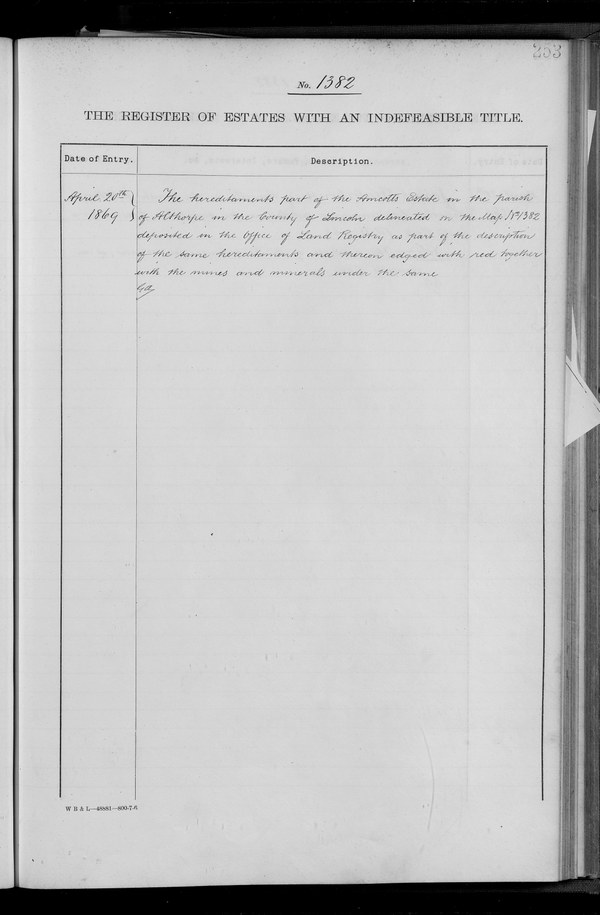 253
No. 1382
THE REGISTER OF ESTATES WITH AN INDEFEASIBLE TITLE.
Date of Entry.
Description.
April 20th
1869
The hereditaments part of the Amcotts Estate in the parish
of Althorpe in the County of Lincoln delineated on the Map No 1382
deposited in the Office of Land Registry as part of the description
of the same hereditaments and thereon edged with red together
with the mines and minerals under the same
W B & L—48881—800-7-